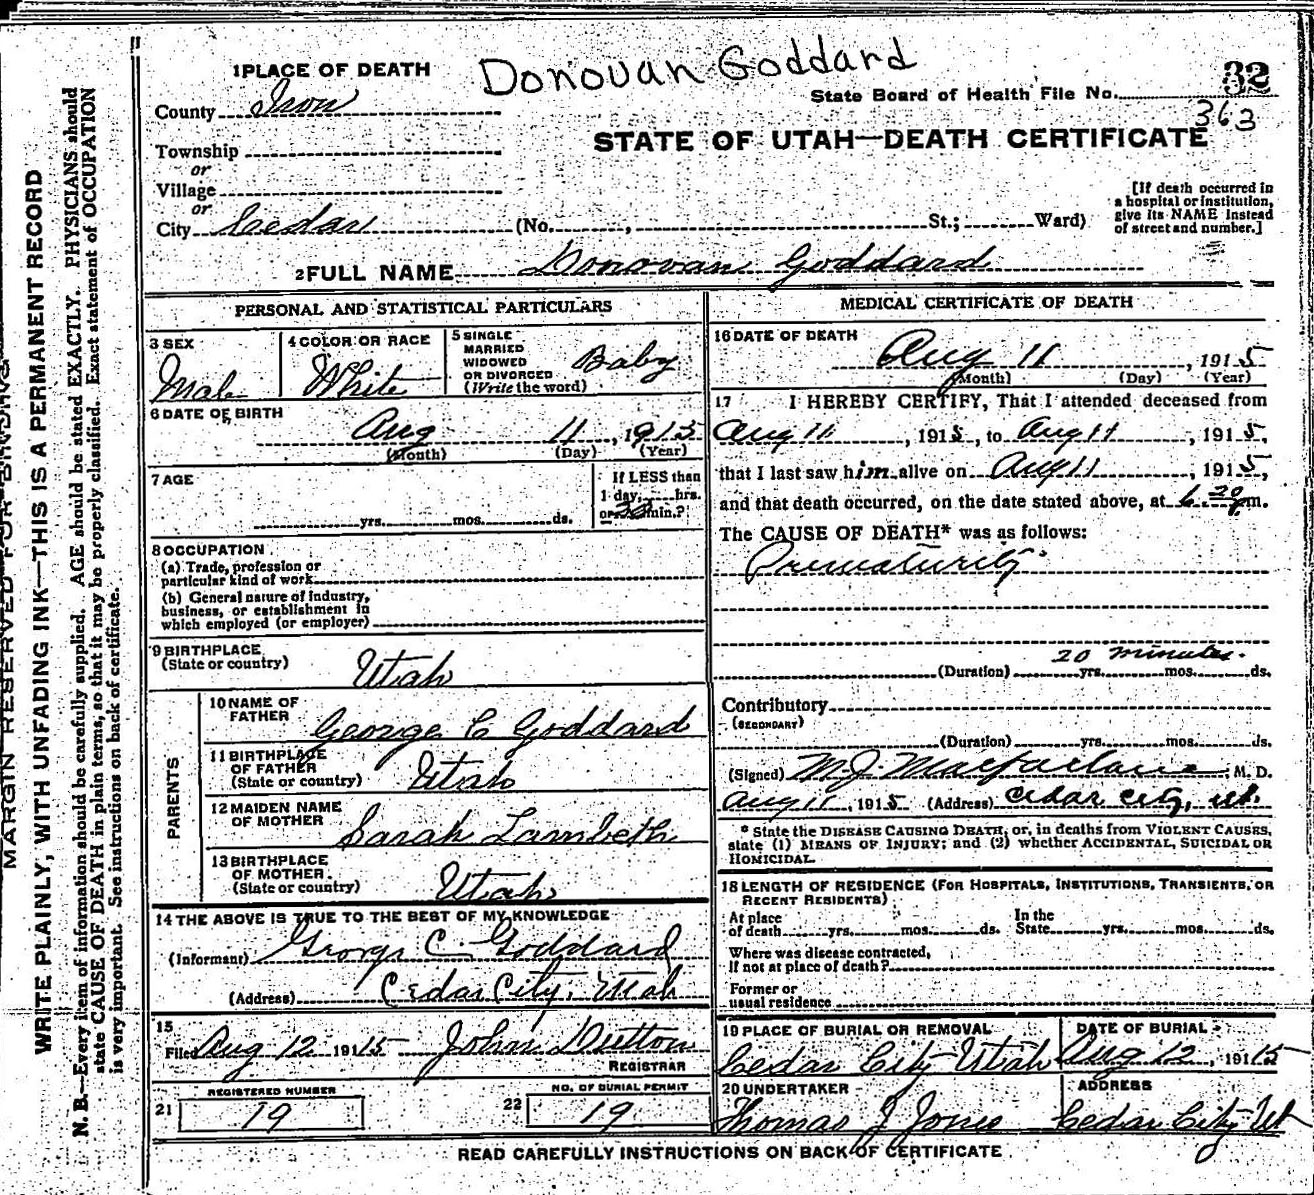 Donovan Goddard
32
1 PLACE OF DEATH
State Board of Health File No.
363
County Iron
STATE OF UTAH—DEATH CERTIFICATE
Township
or
Village
or
City Cedar (No. , St.; Ward)
[If death occurred in
a hospital or institution,
give its NAME instead
of street and number.]
2 FULL NAME Donovan Goddard
PERSONAL AND STATISTICAL PARTICULARS
3 SEX
Male
4 COLOR OR RACE
White
5 SINGLE
MARRIED
WIDOWED
OR DIVORCED
(Write the word)
Baby
6 DATE OF BIRTH
Aug 11, 1915
(Month) (Day) (Year)
7 AGE
yrs. mos. ds.
If LESS than
1 day, hrs.
or min.?
8 OCCUPATION
(a) Trade, profession or
particular kind of work
(b) General nature of industry,
business, or establishment in
which employed (or employer)
9 BIRTHPLACE
(State or country)
Utah
PARENTS
10 NAME OF
FATHER
George C Goddard
11 BIRTHPLACE
OF FATHER
(State or country)
Utah
12 MAIDEN NAME
OF MOTHER
Sarah Lambeth
13 BIRTHPLACE
OF MOTHER.
(State or country)
Utah
14 THE ABOVE IS TRUE TO THE BEST OF MY KNOWLEDGE
(Informant) George C. Goddard
(Address) Cedar City, Utah
15
Filed Aug 12 1915 John Dutton
REGISTRAR
REGISTERED NUMBER
21 19
NO. OF BURIAL PERMIT
22 19
MEDICAL CERTIFICATE OF DEATH
16 DATE OF DEATH
Aug 11, 1915
(Month) (Day) (Year)
17 I HEREBY CERTIFY, That I attended deceased from
Aug 11, 1915, to Aug 11, 1915,
that I last saw him alive on Aug 11, 1915,
and that death occurred, on the date stated above, at 6.20 m.
The CAUSE OF DEATH* was as follows:
Prematurity
20 minutes.
(Duration) yrs. mos. ds.
Contributory
(SECONDARY)
(Duration) yrs. mos. ds.
(Signed) M J. Macfarlane, M. D.
Aug 11, 1915 (Address) Cedar City, Ut.
* State the DISEASE CAUSING DEATH, or, in deaths from VIOLENT CAUSES,
state (1) MEANS OF INJURY; and (2) whether ACCIDENTAL, SUICIDAL OR
HOMICIDAL.
18 LENGTH OF RESIDENCE (FOR HOSPITALS, INSTITUTIONS, TRANSIENTS, OR
RECENT RESIDENTS)
At place
of death yrs. mos. ds.
In the
State yrs. mos. ds.
Where was disease contracted,
if not at place of death?
Former or
usual residence
19 PLACE OF BURIAL OR REMOVAL
Cedar City Utah
DATE OF BURIAL
Aug 12, 1915
20 UNDERTAKER
Thomas J Jones
ADDRESS
Cedar City Ut
READ CAREFULLY INSTRUCTIONS ON BACK OF CERTIFICATE
MARGIN RESERVED FOR BINDING
WRITE PLAINLY, WITH UNFADING INK—THIS IS A PERMANENT RECORD
N. B.—Every item of information should be carefully supplied. AGE should be stated EXACTLY. PHYSICIANS should
state CAUSE OF DEATH in plain terms, so that it may be properly classified. Exact statement of OCCUPATION
is very important. See instructions on back of certificate.